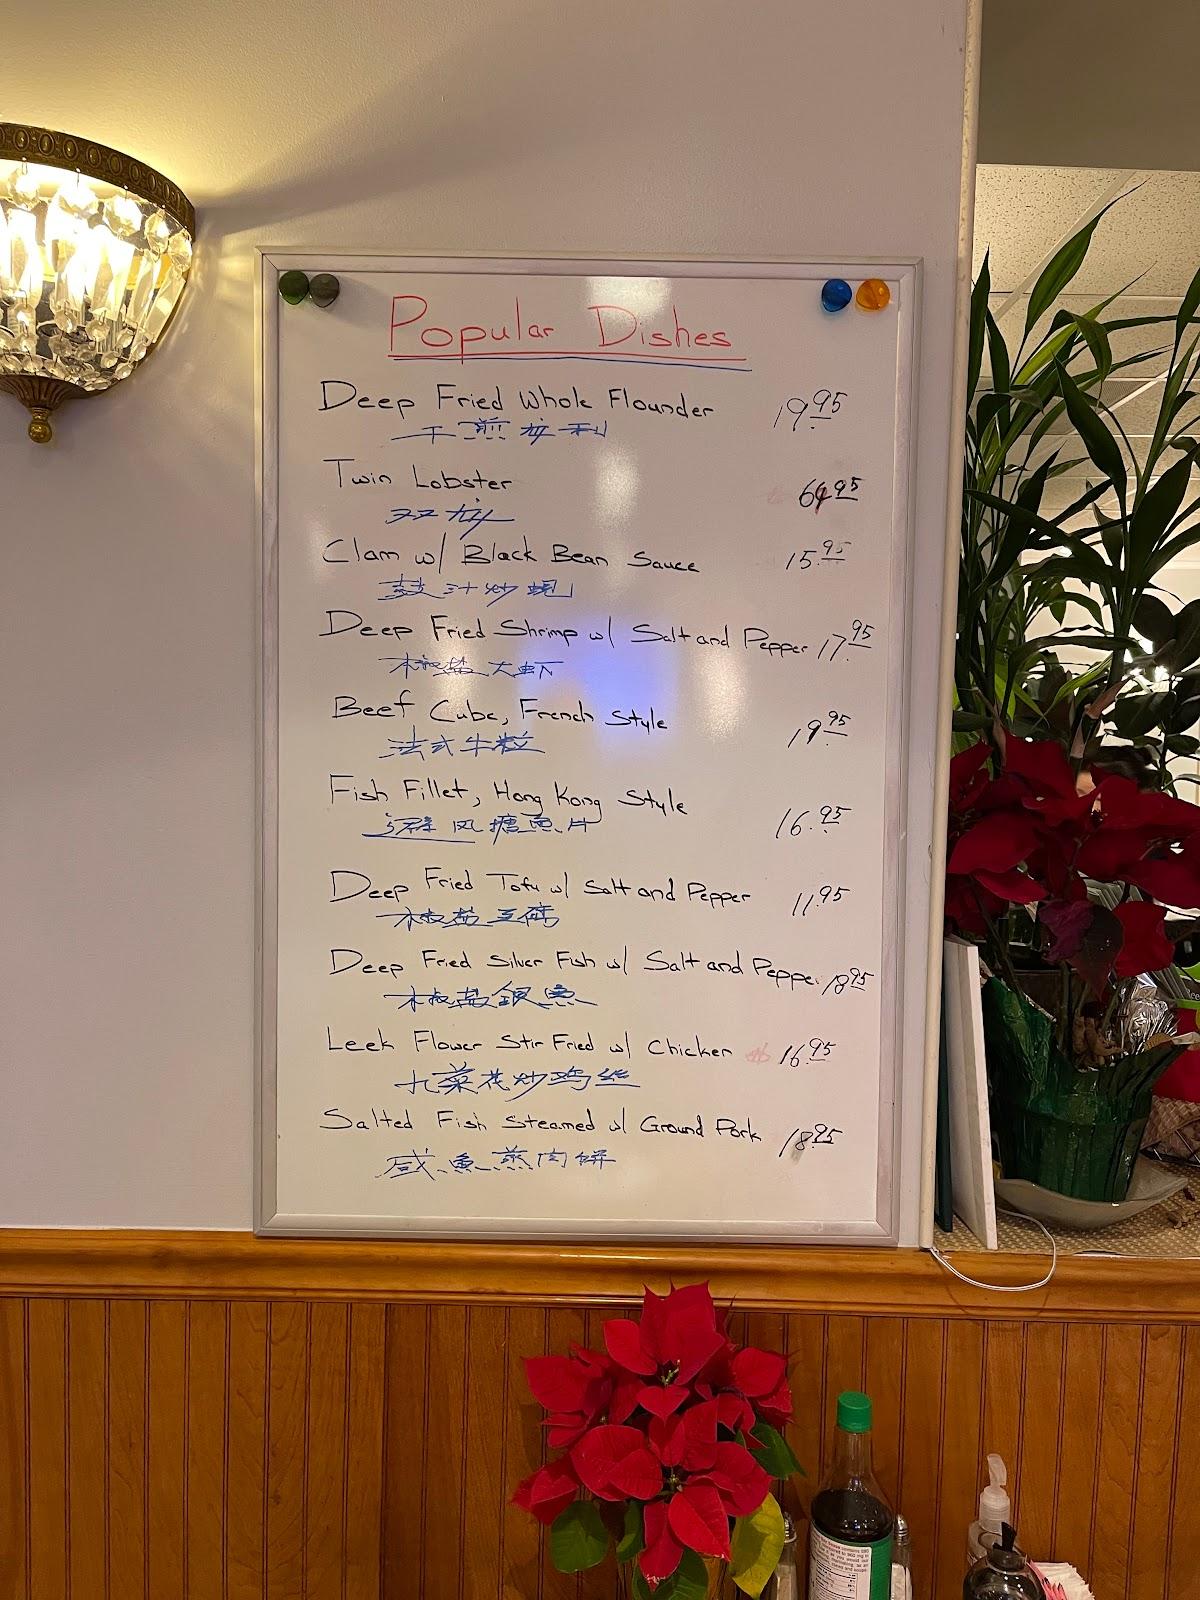 Popular Dishes
Deep Fried Whole Flounder 19.95
干煎龙利
Twin Lobster 64.95
双龙
Clam w/ Black Bean Sauce 15.95
鼓汁炒蚬
Deep Fried Shrimp w/ Salt and Pepper 17.95
椒盐大虾
Beef Cube, French Style 19.95
法式牛粒
Fish Fillet, Hong Kong Style 16.95
避风塘魚片
Deep Fried Tofu w/ Salt and Pepper 11.95
椒盐豆腐
Deep Fried Silver Fish w/ Salt and Pepper 18.95
椒盐银魚
Leek Flower Stir Fried w/ Chicken 16.95
九菜花炒鸡丝
Salted Fish Steamed w/ Ground Pork 18.95
咸魚蒸肉饼